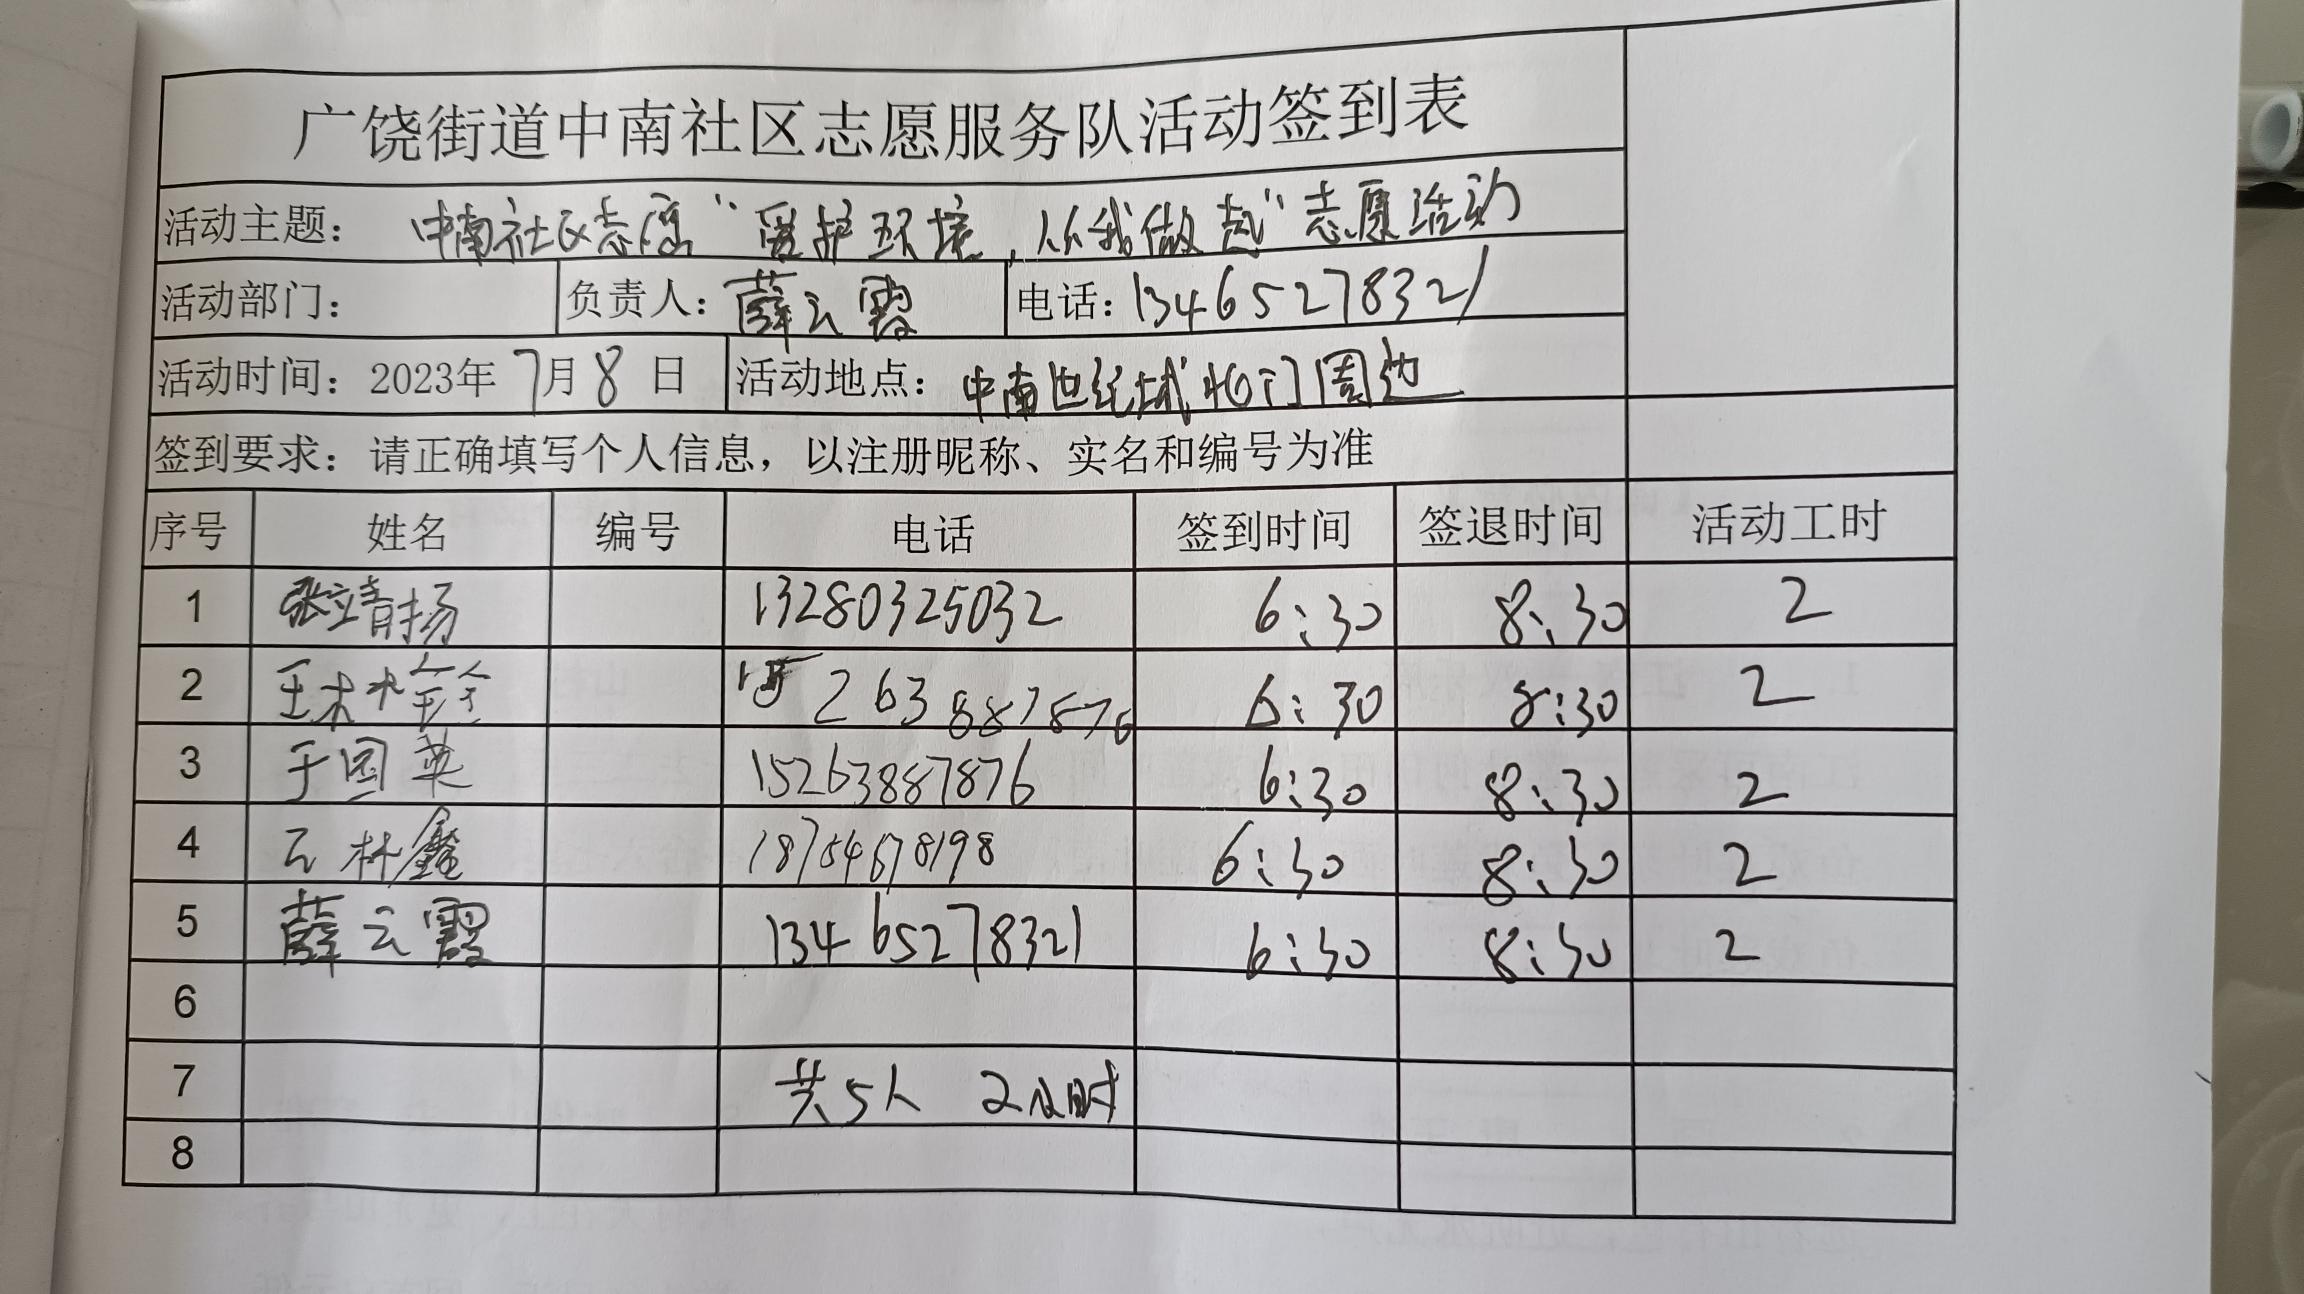 广饶街道中南社区志愿服务队活动签到表
活动主题： 中南社区志愿“爱护环境，从我做起”志愿活动
活动部门： 负责人：薛云霞 电话：13465278321
活动时间：2023年 7月 8 日 活动地点：中南世纪城北门周边
签到要求：请正确填写个人信息，以注册昵称、实名和编号为准
序号 姓名 编号 电话 签到时间 签退时间 活动工时
1 张靖扬 13280325032 6:30 8:30 2
2 263887876 6:30 8:30 2
3 于国英 15263887876 6:30 8:30 2
4 6:30 8:30 2
5 薛云霞 13465278321 6:30 8:30 2
6
7 共5人 2小时
8